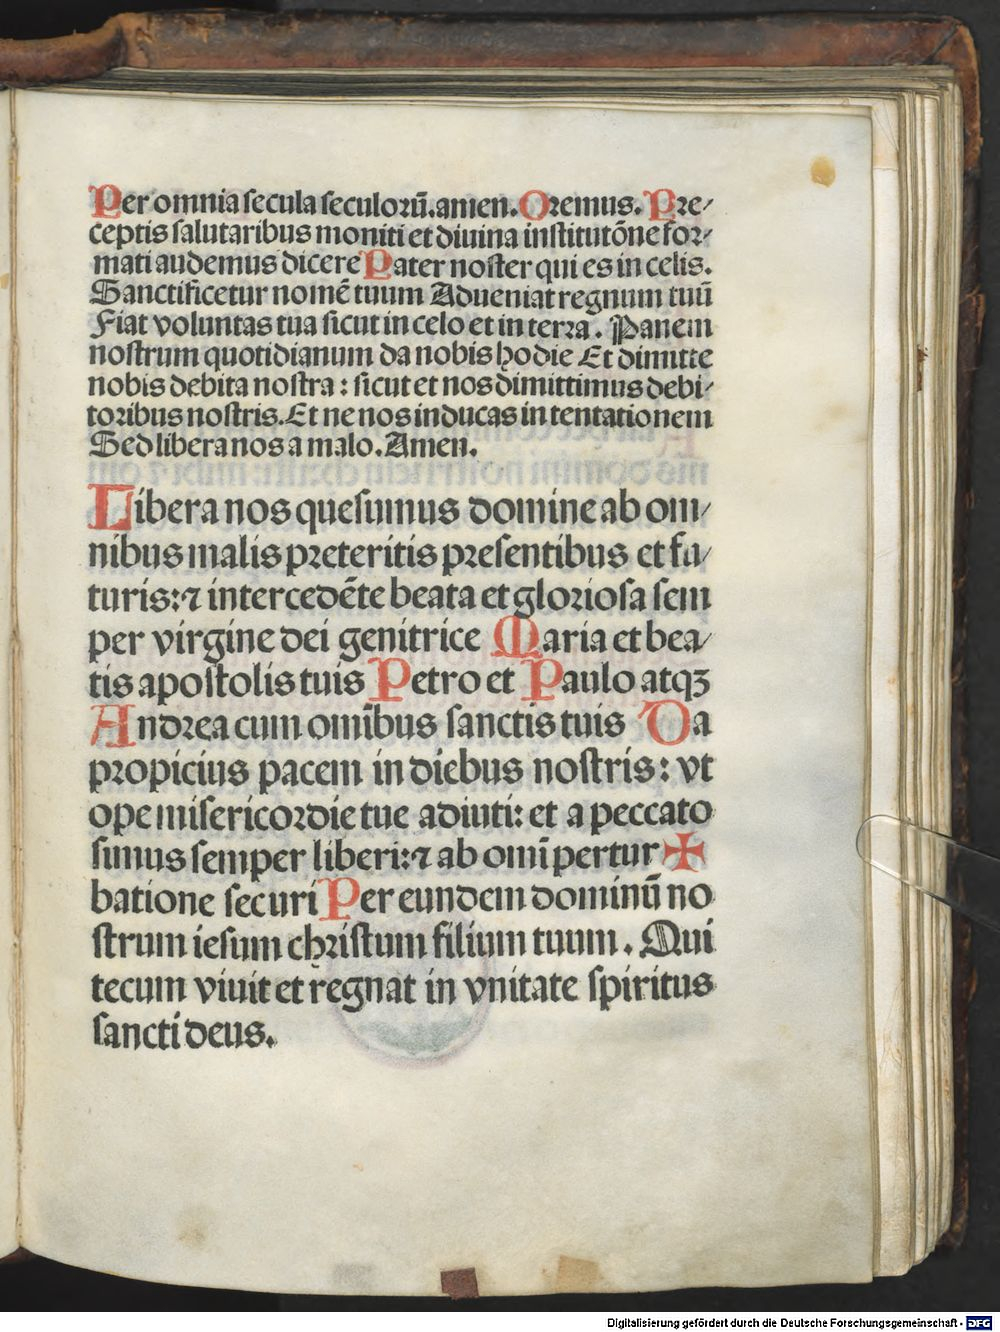 Per omnia secula seculoꝛū. amen. Oꝛemus. Pꝛe⸗
ceptis salutaribus moniti et diuina institutōne foꝛ⸗
mati audemus dicere Pater noster qui es in celis.
Sanctificetur nomē tuum Adueniat regnum tuū
Fiat voluntas tua sicut in celo et in terꝛa. Panem
nostrum quotidianum da nobis hodie Et dimitte
nobis debita nostra : sicut et nos dimittimus debi⸗
toꝛibus nostris. Et ne nos inducas in tentationem
Sed libera nos a malo. Amen.
Libera nos quesumus domine ab om⸗
nibus malis preteritis presentibus et fu⸗
turis: ⁊ intercedēte beata et gloꝛiosa sem
per virgine dei genitrice Maria et bea⸗
tis apostolis tuis Petro et Paulo atqꝫ
Andꝛea cum omībus sanctis tuis Da
pꝛopicius pacem in diebus nostris: vt
ope misericoꝛdie tue adiuti: et a peccato
simus semper liberi: ⁊ ab omī pertur ✠
batione securi Per eundem dominū no
strum iesum chꝛistum filium tuum. Qui
tecum viuit et regnat in vnitate spiritus
sancti deus.
Digitalisierung gefördert durch die Deutsche Forschungsgemeinschaft - DFG